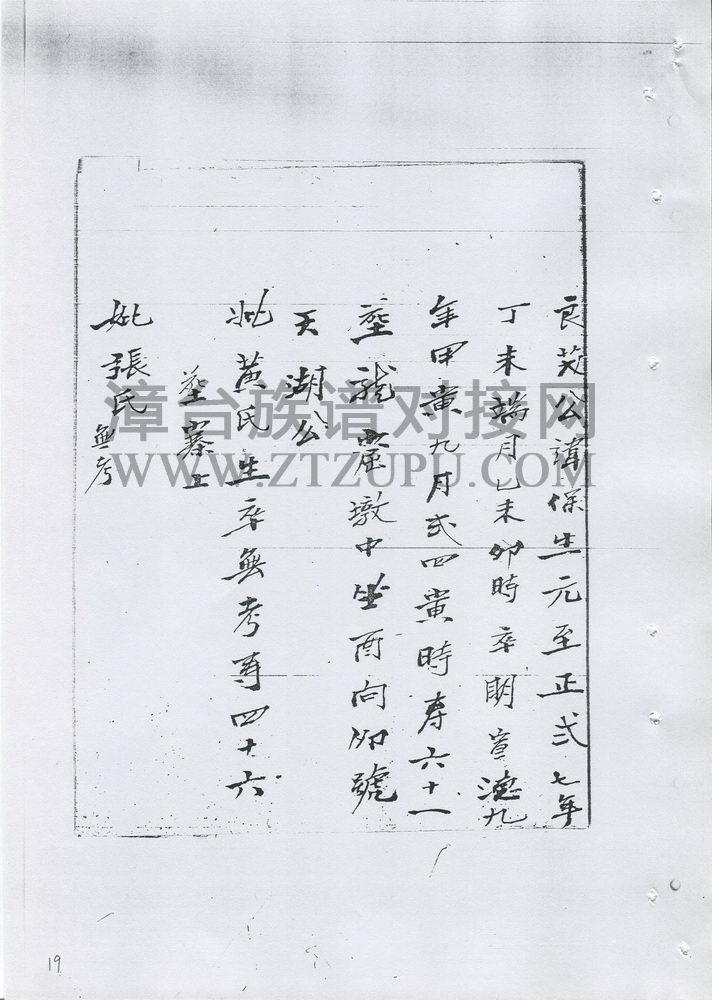 良茂公諱保生元至正弍七年
丁未端月乙未卯時卒明宣德九
年甲寅九月弍四寅時寿六十一
塟龍窟墩中坐酉向卯號
天湖公
妣黄氏生卒無考寿四十六
塟寨上
妣張氏無考
漳台族谱对接网
WWW.ZTZUPU.COM
19